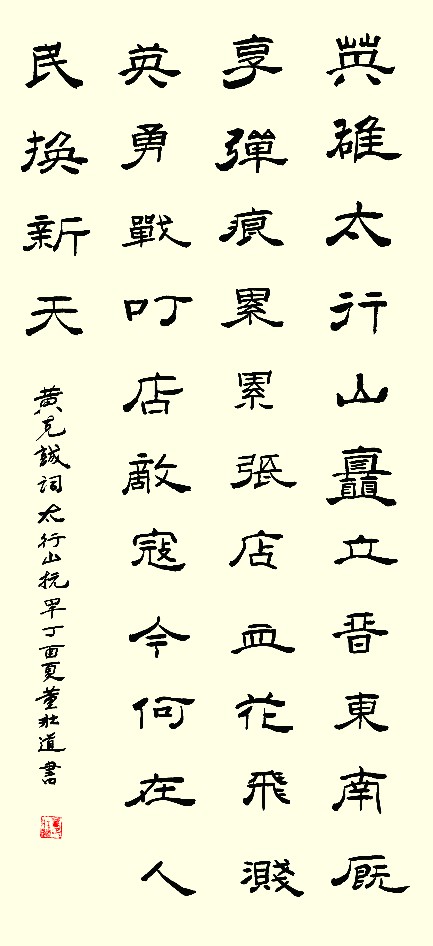 英雄太行山矗立晋東南厩
享彈痕累累張店血花飛濺
英勇戰叮店敵寇今何在人
民換新天
黄克誠詞太行山抗旱丁酉夏董壯道書